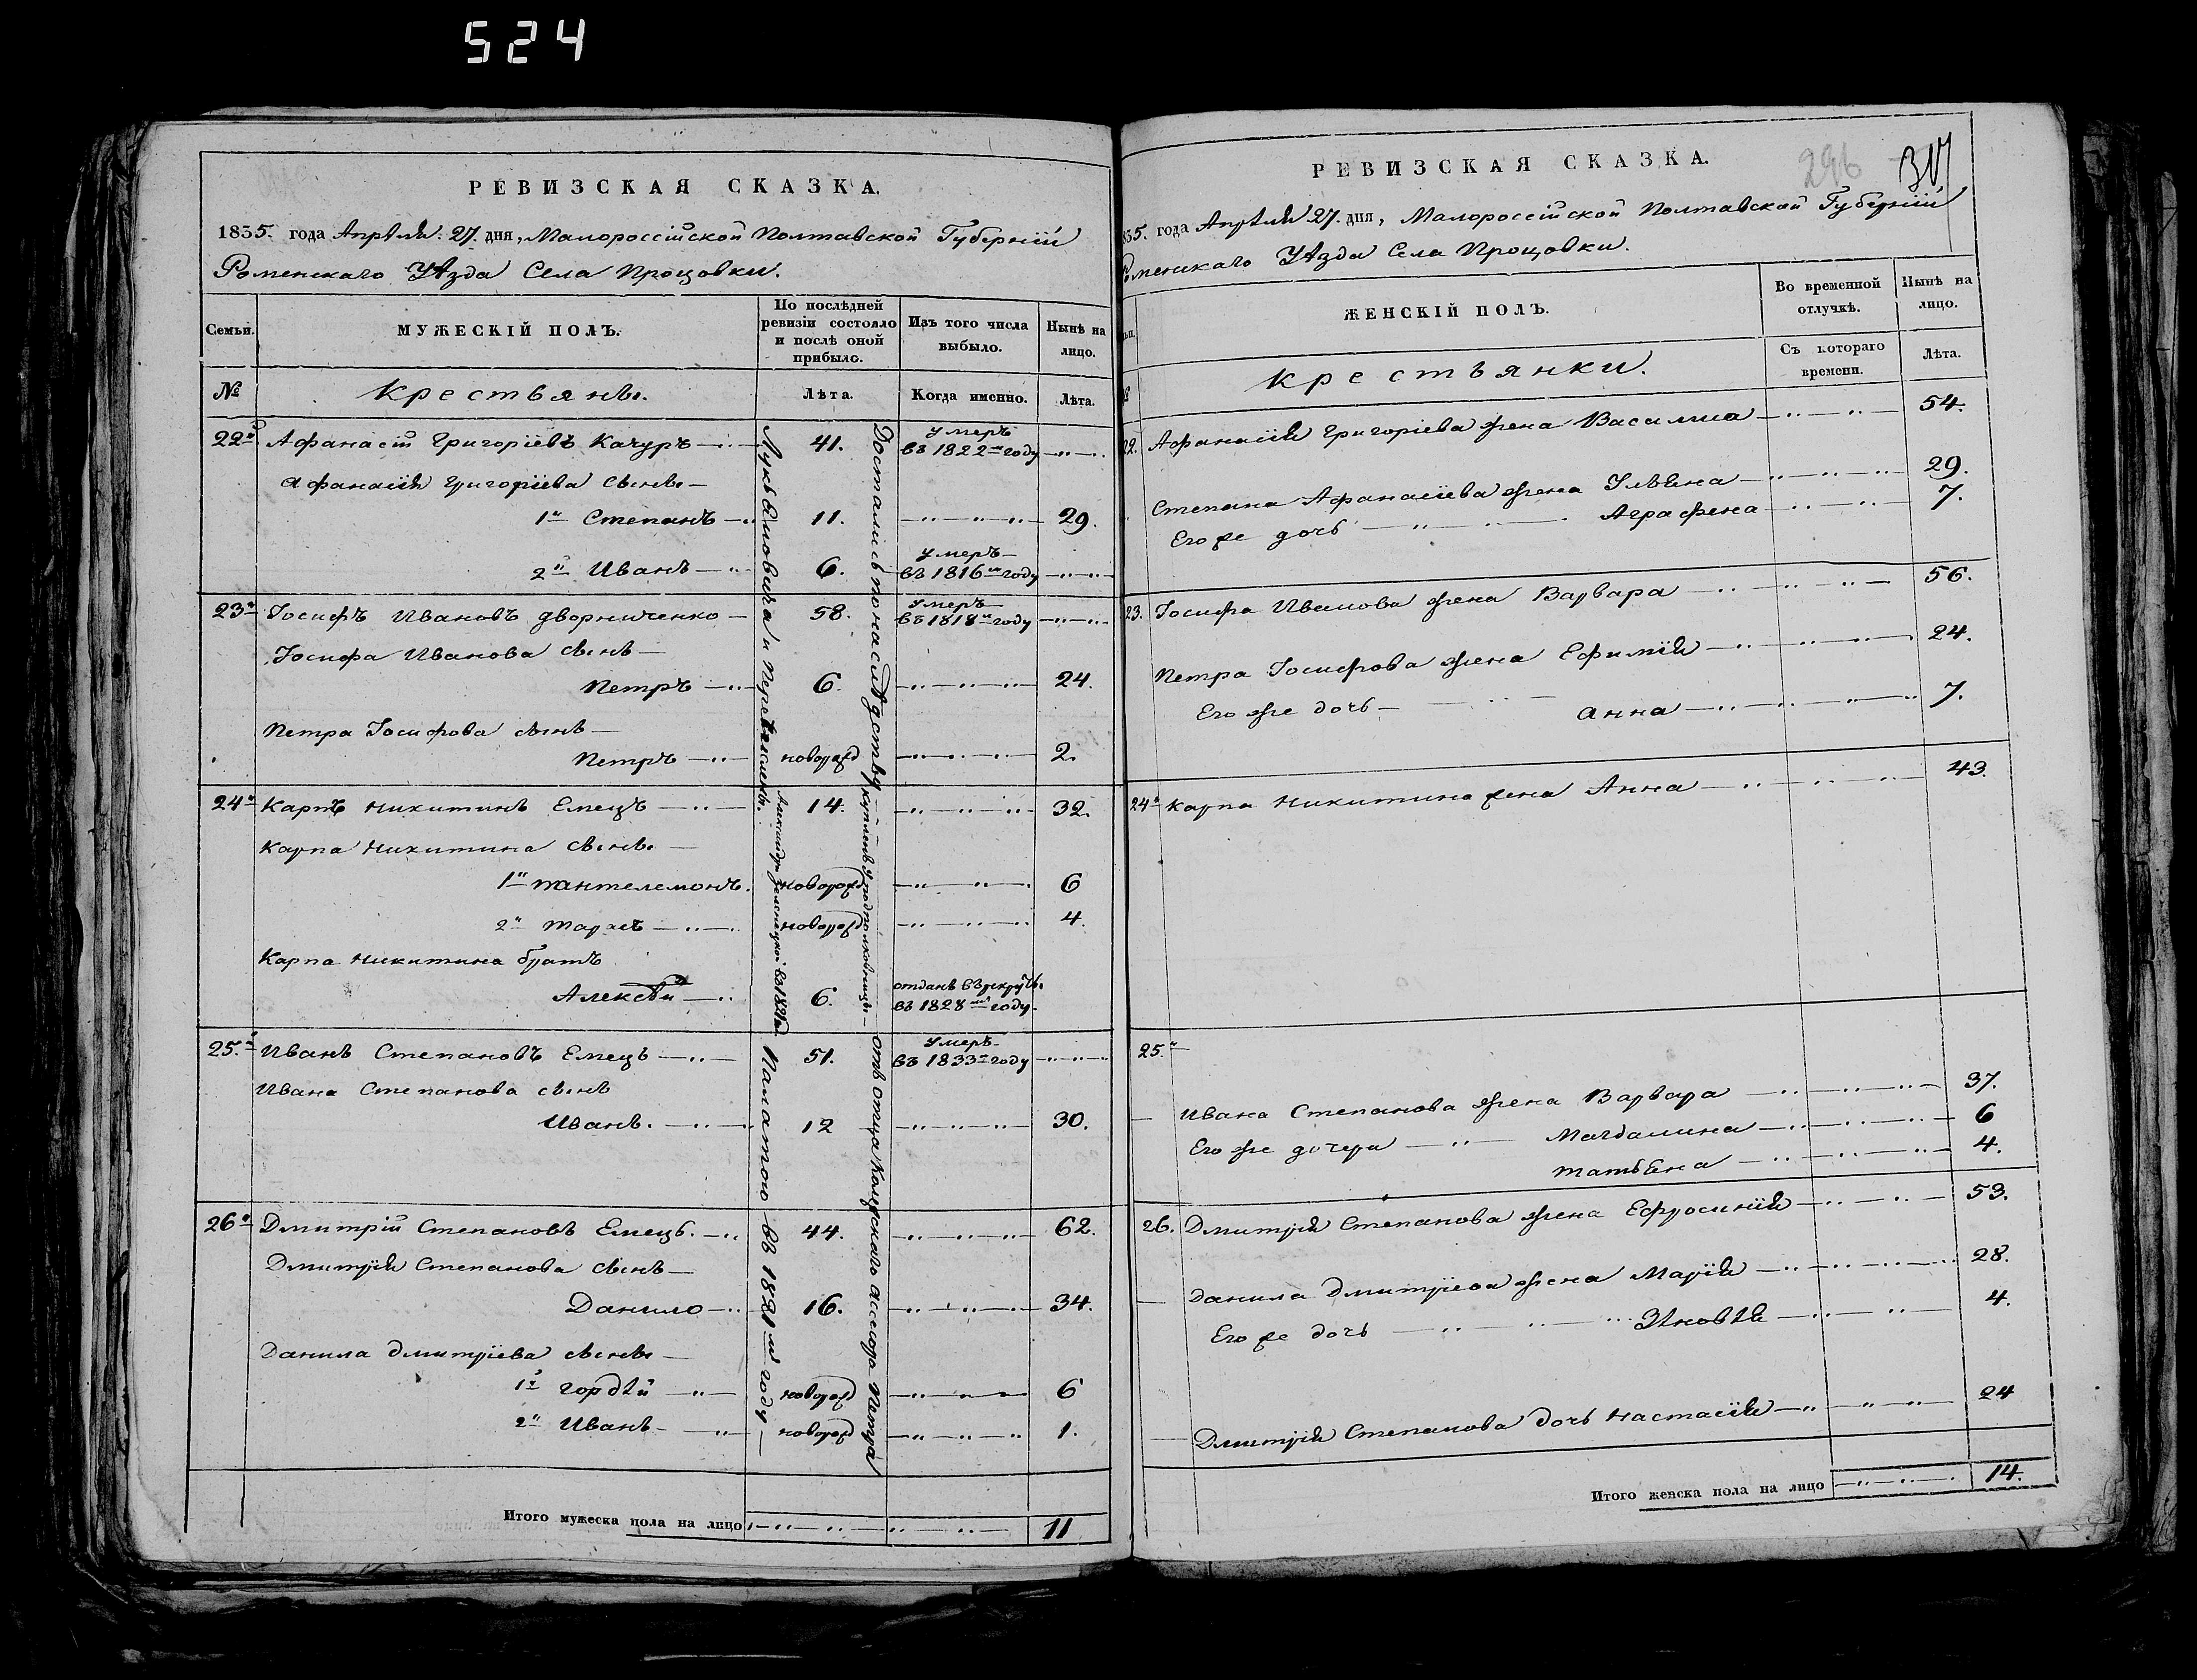 524
РЕВИЗСКАЯ СКАЗКА.
1835. года Апрѣля. 27. дня, Малороссійской Полтавской Губерніи
Роменскаго Уѣзда Села Процовки.
Семьи.
МУЖЕСКІЙ ПОЛЪ.
По послѣдней ревизіи состояло и послѣ оной прибыло.
Изъ того числа выбыло.
Нынѣ на лицо.
№ Крестьянѣ. Лѣта. Когда именно. Лѣта.
22й Афанасій Григоріевъ Качуръ 41. умеръ въ 1822м году
Афанасія Григоріева сыны
1й Степанъ 11. 29.
2й Иванъ 6. умеръ въ 1816м году
23й Іосифъ Ивановъ Дворниченко 58. умеръ въ 1818м году
Іосифа Иванова сынъ
Петръ 6. 24.
Петра Іосифова сынъ
Петръ новорожд 2.
24й Карпъ Никитинъ Емецъ 14. 32.
Карпа Никитина сыны
1й Пантелемонъ. новорожд 6
2й Тарасъ новорожд 4.
Карпа Никитина братъ
Алексѣй 6. отданъ въ рекруты въ 1828мъ году.
25.й Иванъ Степановъ Емецъ 51. умеръ въ 1833м году
Ивана Степанова сынъ
Иванъ. 12 30.
26й Дмитрій Степановъ Емецъ. 44. 62.
Дмитрія Степанова сынъ
Данило 16. 34.
Данила Дмитріева сыны
1й Гордѣй новорожд 6
2й Иванъ новорожд 1.
въ 1821мъ году
Достались по наслѣдству
отъ отца Ассесора Петра
Итого мужеска пола на лицо 11
РЕВИЗСКАЯ СКАЗКА.
296
317
835. года Апрѣля 27. дня, Малороссійской Полтавской Губерніи
Роменскаго Уѣзда Села Процовки.
ЖЕНСКІЙ ПОЛЪ.
Во временной отлучкѣ.
Нынѣ на лицо.
Крестьянки.
Съ котораго времени.
Лѣта.
22. Афанасія Григоріева жена Василиса 54.
Степана Афанасіева жена Ульяна 29.
Его же дочь Аграфена 7.
23. Іосифа Иванова жена Варвара 56.
Петра Іосифова жена Ефимія 24.
Его же дочь Анна 7.
24й Карпа Никитина жена Анна 43.
25.й
Ивана Степанова жена Варвара 37.
Его же дочери Магдалина 6
Татьяна 4.
26. Дмитрія Степанова жена Ефросинія 53.
Данила Дмитріева жена Марія 28.
Его же дочь Зѣновѣя 4.
Дмитрія Степанова дочь Настасія 24
Итого женска пола на лицо 14.